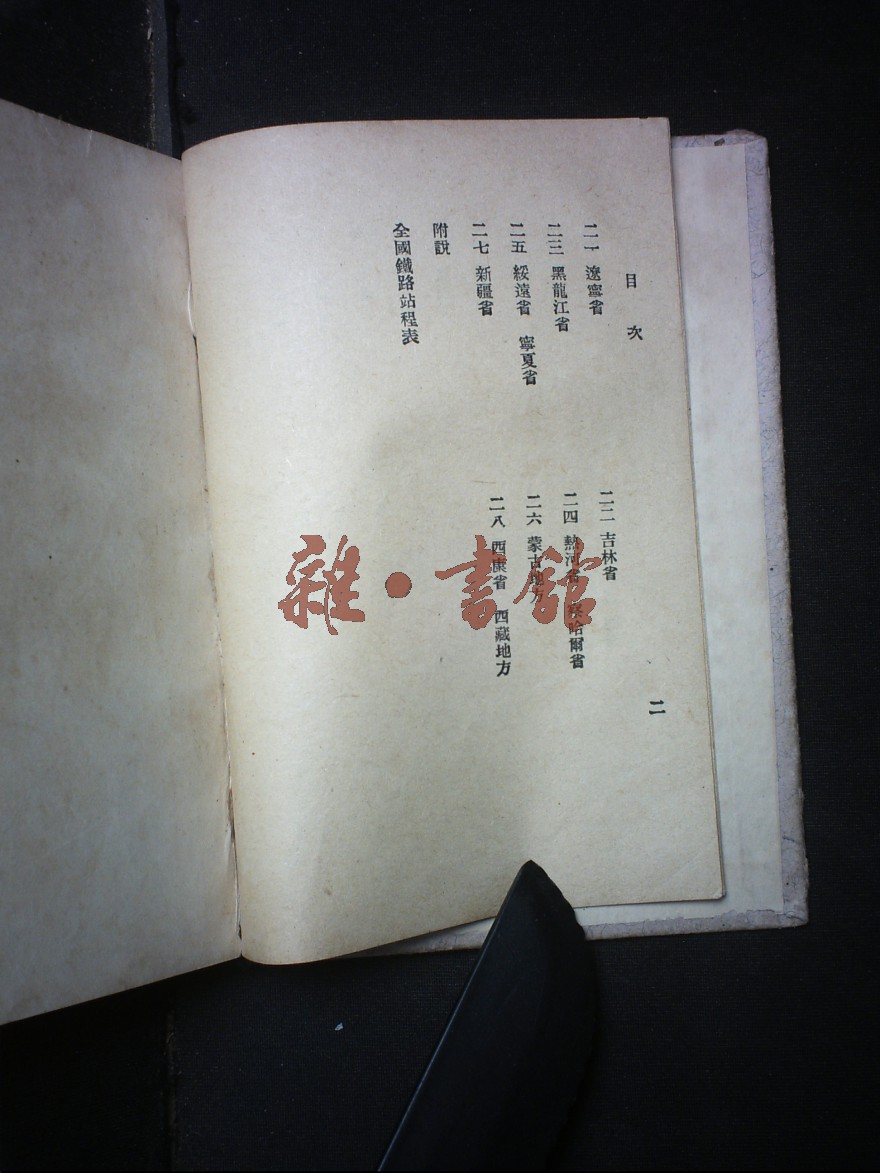 目次
二
二一 遼寧省
二二 吉林省
二三 黑龍江省
二四 熱河省 察哈爾省
二五 綏遠省 寧夏省
二六 蒙古地方
二七 新疆省
二八 西康省 西藏地方
附說
全國鐵路站程表
雜·書館